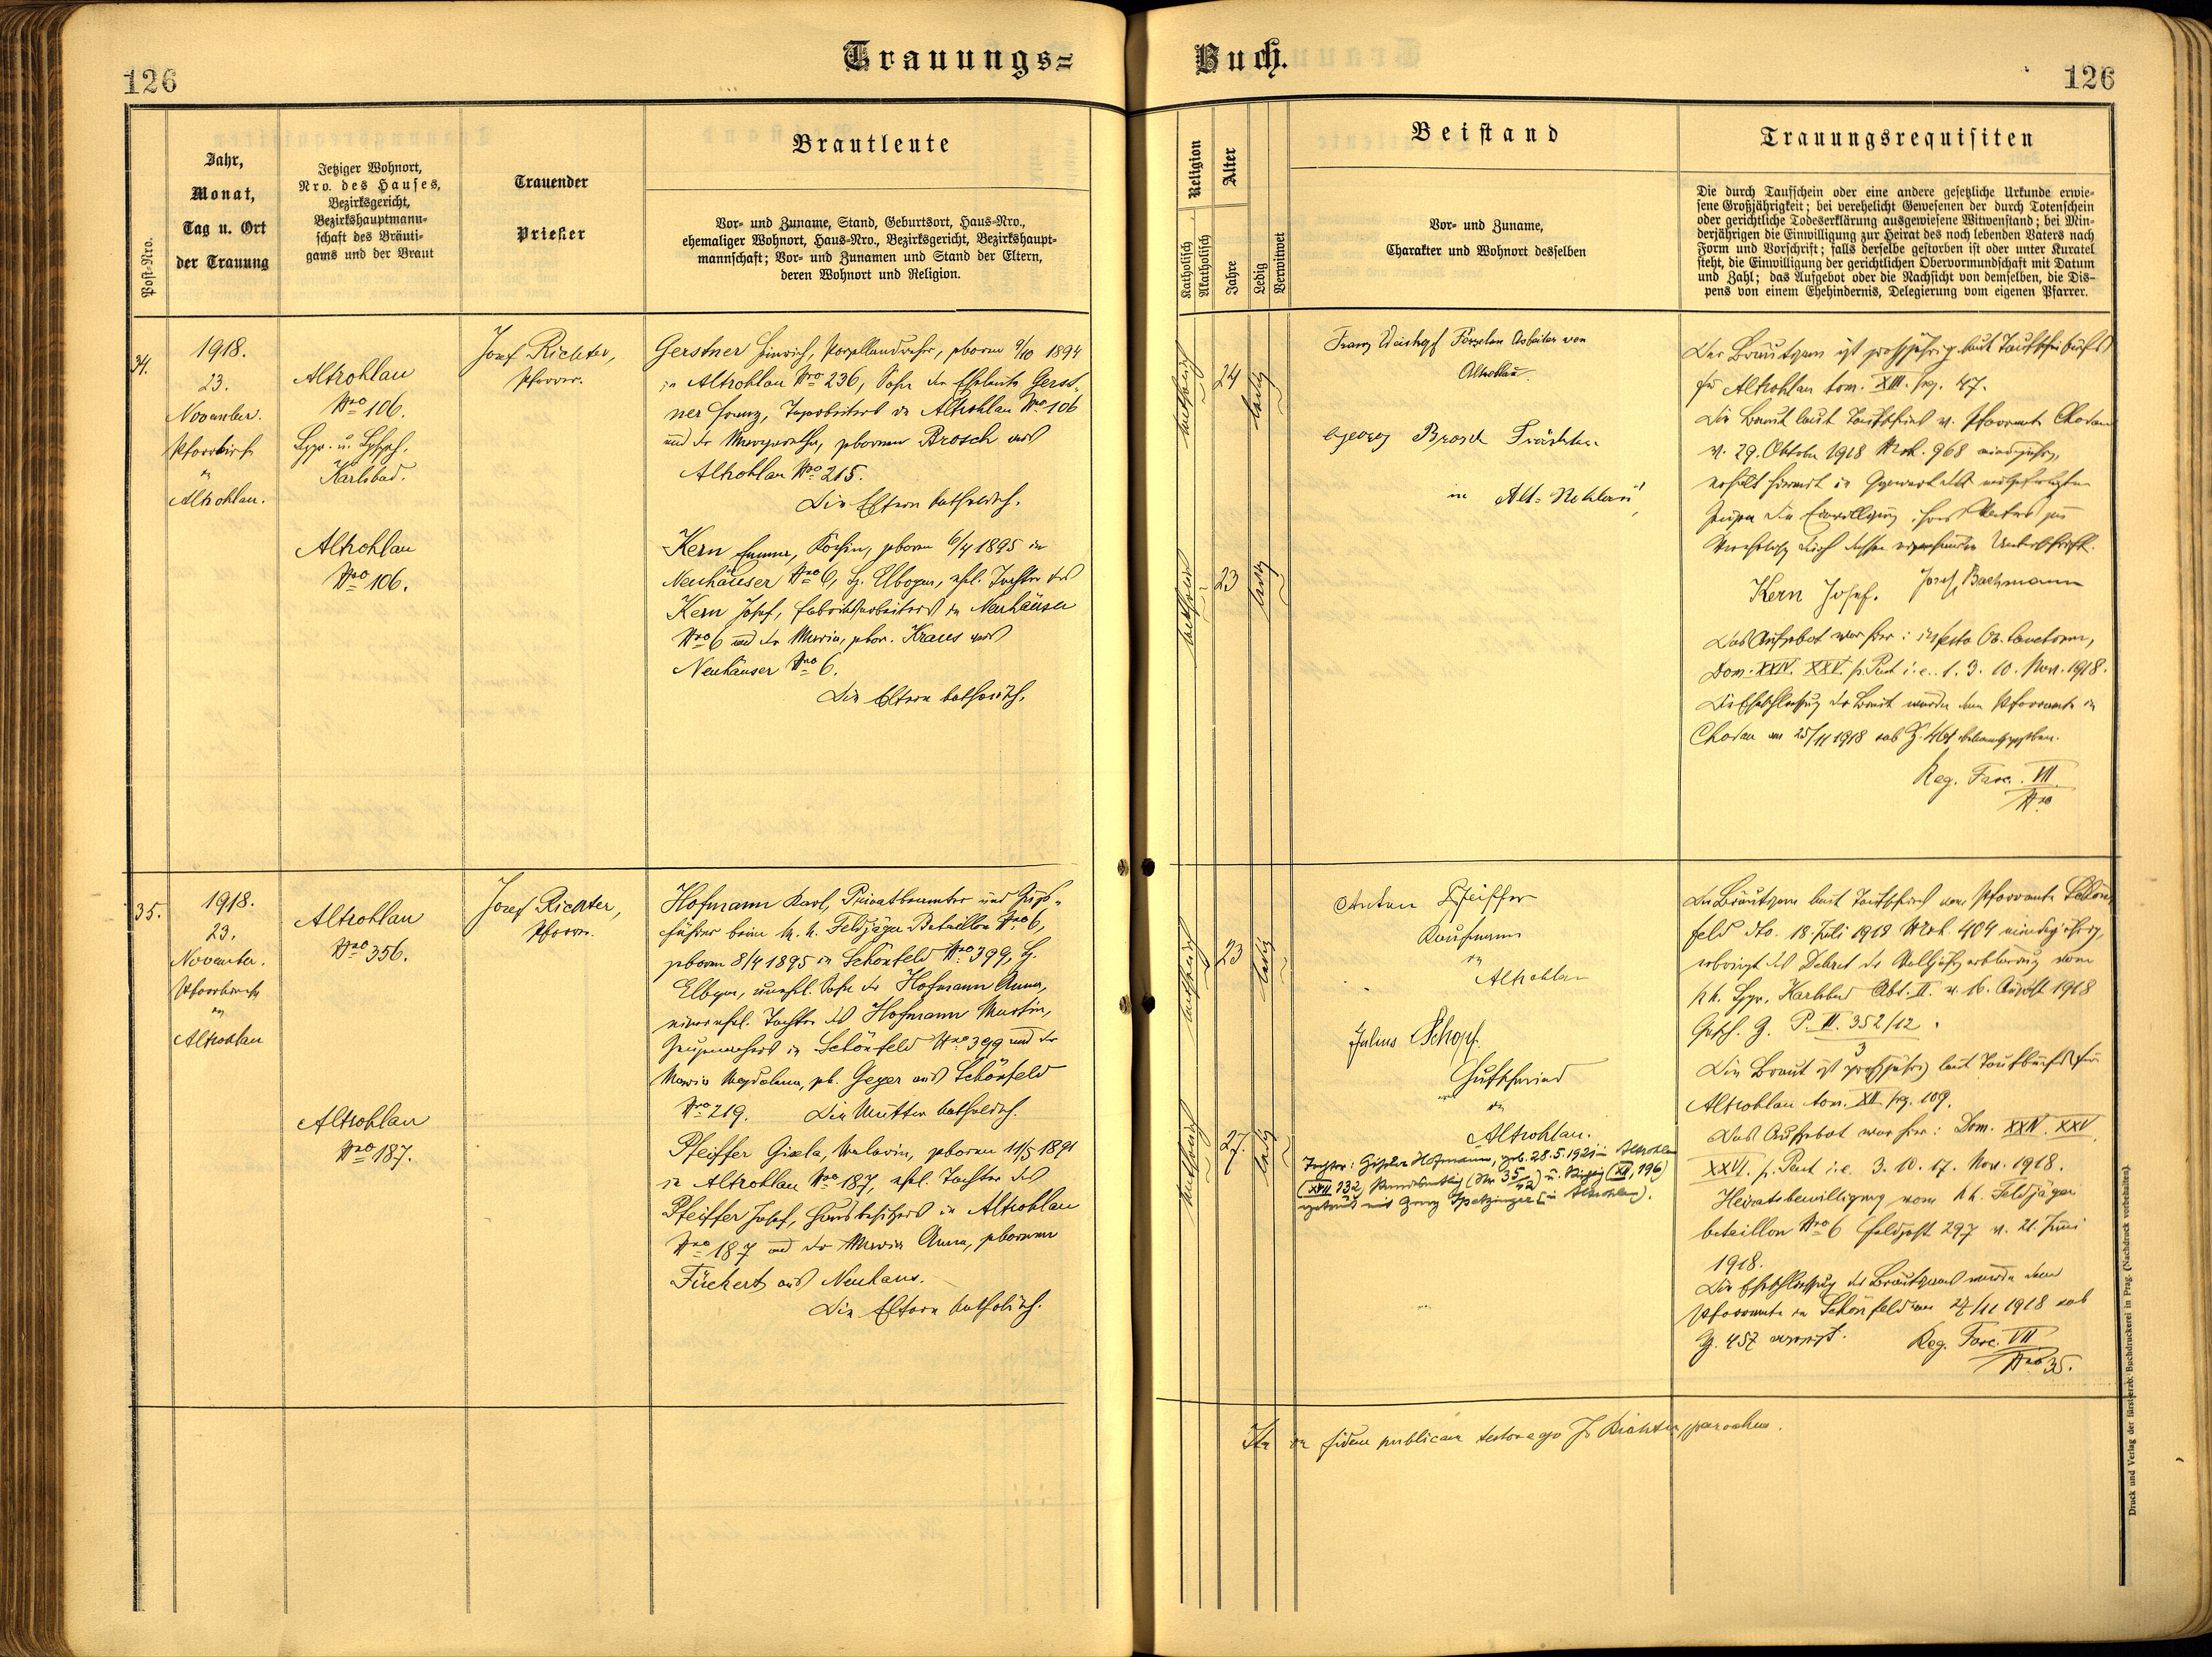 Trauungs=
Buch.
126
126
Post-Nro.
Jahr,
Monat,
Tag u. Ort
der Trauung
Jetziger Wohnort,
Nro. des Hauses,
Bezirksgericht,
Bezirkshauptmann-
schaft des Bräuti-
gams und der Braut
Trauender
Priester
Brautleute
Vor- und Zuname, Stand, Geburtsort, Haus-Nro.,
ehemaliger Wohnort, Haus-Nro., Bezirksgericht, Bezirkshaupt-
mannschaft; Vor- und Zunamen und Stand der Eltern,
deren Wohnort und Religion.
Religion
Katholisch
Akatholisch
Alter
Jahre
Ledig
Verwitwet
Beistand
Vor- und Zuname,
Charakter und Wohnort desselben
Trauungsrequisiten
Die durch Taufschein oder eine andere gesetzliche Urkunde erwie-
sene Großjährigkeit; bei verehelicht Gewesenen der durch Totenschein
oder gerichtliche Todeserklärung ausgewiesene Witwenstand; bei Min-
derjährigen die Einwilligung zur Heirat des noch lebenden Vaters nach
Form und Vorschrift; falls derselbe gestorben ist oder unter Kuratel
steht, die Einwilligung der gerichtlichen Obervormundschaft mit Datum
und Zahl; das Aufgebot oder die Nachsicht von demselben, die Dis-
pens von einem Ehehindernis, Delegierung vom eigenen Pfarrer.
34.
1918.
23.
November.
Pfarrkirche
in
Altrohlau.
Altrohlau
Nro 106.
Karlsbad.
Altrohlau
Nro 106.
Josef Richter,
Pfarrer.
Gerstner Heinrich, Porzellandreher, geboren 9/10 1894
in Altrohlau Nro 236, Sohn der Eheleute Gerst-
ner Franz, Tagarbeiters in Altrohlau Nro 106
und der Margaretha, geborenen Brosch aus
Altrohlau Nro 215.
Die Eltern katholisch.
Kern Emma, Köchin, geboren 6/4 1895 in
Neuhäuser Nro 6, Bz. Elbogen, ehel. Tochter des
Kern Josef, Fabriksarbeiters in Neuhäuser
Nro 6 und der Maria, gebor. Kraus aus
Neuhäuser Nro 6.
Die Eltern katholisch.
katholisch
24
ledig
katholisch
23
ledig
Franz Porzelan Arbeiter von
Altrohlau
Georg Brosch
in Alt-Rohlau
Der Bräutigam ist großjährig laut Taufbuch
für Altrohlau tom. XIII. pag. 47.
Die Braut laut Taufschein v. Pfarramte Chodau
v. 29. Oktober 1918 Mat. 968 minderjährig,
erhält hiermit in Gegenwart der mitgefertigten
Zeugen die Einwilligung ihres Vaters zur
Verehelichung durch dessen eigenhändige Unterschrift.
Kern Josef. Josef Bachmann
Das Aufgebot war hier: in festo
Dom. XXIV. XXV. p. Pent i. e. 1. 3. 10. Nov. 1918.
Die Eheschließung der Braut wurde dem Pfarramte in
Chodau am 25/11 1918 sub Z. bekanntgegeben.
Reg. Fasc. VII
Nro
35.
1918.
23.
November.
Pfarrkirche
in
Altrohlau
Altrohlau
Nro 356.
Altrohlau
Nro 187.
Josef Richter,
Pfarrer.
Hofmann Karl, Privatbeamter und Zugs-
führer beim k. k. Feldjäger Bataillon Nro 6,
geboren 8/4 1895 in Schönfeld Nro 399, Bz.
Elbogen, unehel. Sohn der Hofmann Anna,
ehel. Tochter des Hofmann Martin,
in Schönfeld Nro 399 und der
Maria Magdalena, geb. Geyer aus Schönfeld
Nro 219. Die Mutter katholisch.
Pfeiffer Gisela, Malerin, geboren 11/5 1891
in Altrohlau Nro 187, ehel. Tochter des
Pfeiffer Josef, Hausbesitzers in Altrohlau
Nro 187 und der Maria Anna, geborenen
Füchert aus Neuhaus.
Die Eltern katholisch.
katholisch
23
ledig
katholisch
27.
ledig
Anton Pfeiffer
Kaufmann
in
Altrohlau
Julius Schopf
Hufschmied
in
Altrohlau.
Tochter: Gisela Hofmann, geb. 28.5.1921 in Altrohlau
(XVII 132)
getraut mit in Altrohlau).
Der Bräutigam laut Taufschein vom Pfarramte Schön-
feld dto. 18. Juli 1918 Mat. 404 minderjährig,
erbringt das Dekret der Volljährigerklärung vom
k. k. Karlsbad Abt. II. v. 16. August 1918
Gesch. Z. P. II. 352/12
3
Die Braut ist großjährig laut Taufbuch für
Altrohlau tom. XII pag. 109.
Das Aufgebot war hier: Dom. XXIV. XXV.
XXVI. p. Pent i. e. 3. 10. 17. Nov. 1918.
Heiratsbewilligung vom k. k. Feldjäger
bataillon Nro 6 Feldpost 297 v. 21. Juni
1918.
Die Eheschließung des Bräutigams wurde dem
Pfarramte in Schönfeld am 24/11 1918 sub
Z. 457 angezeigt. Reg. Fasc. VII
Nro 35.
Ita in fidem publicam testor ego J. Richter, parochus.
Druck und Verlag der fürsterzb. Buchdruckerei in Prag. (Nachdruck vorbehalten).